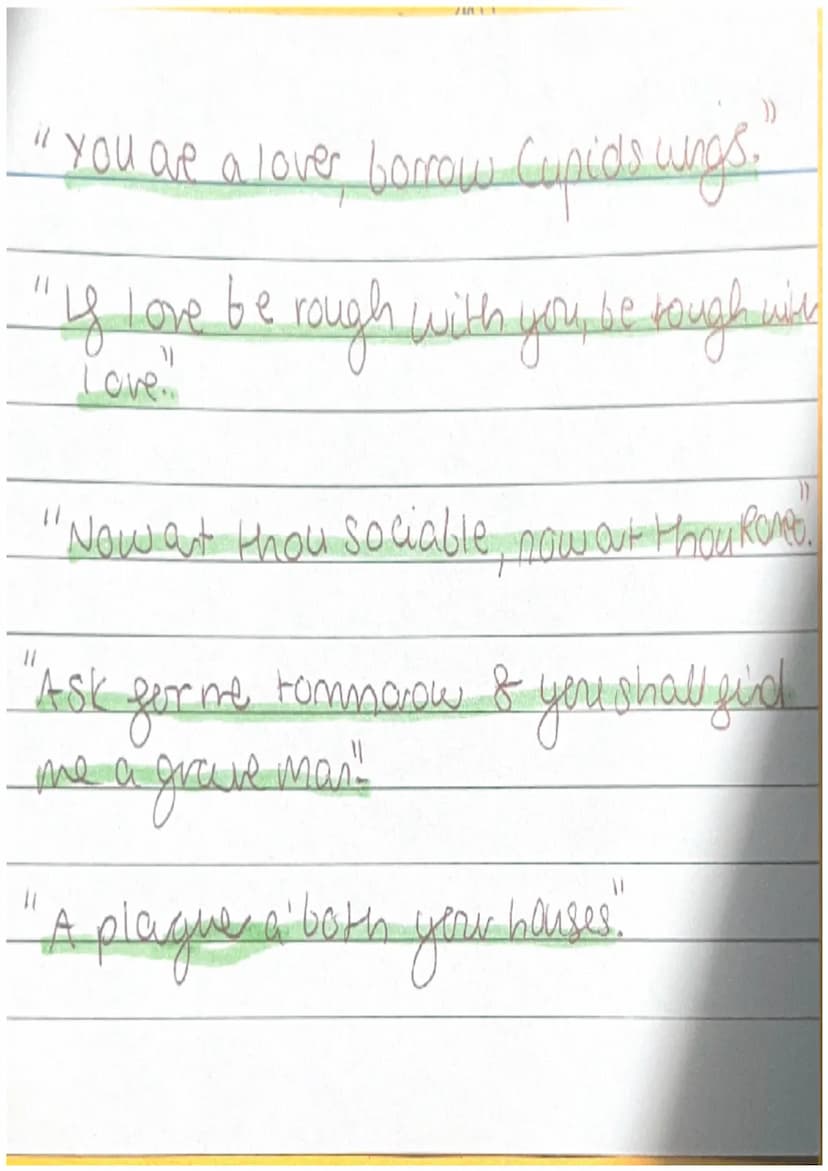 "You are a lover, borrow Cupids wings."
"If love be rough with you, be rough with
love."
"Now art thou sociable, now art thou Romeo."
"Ask for me tommorow & you shall find
me a grave man."
"A plague a' both your houses."